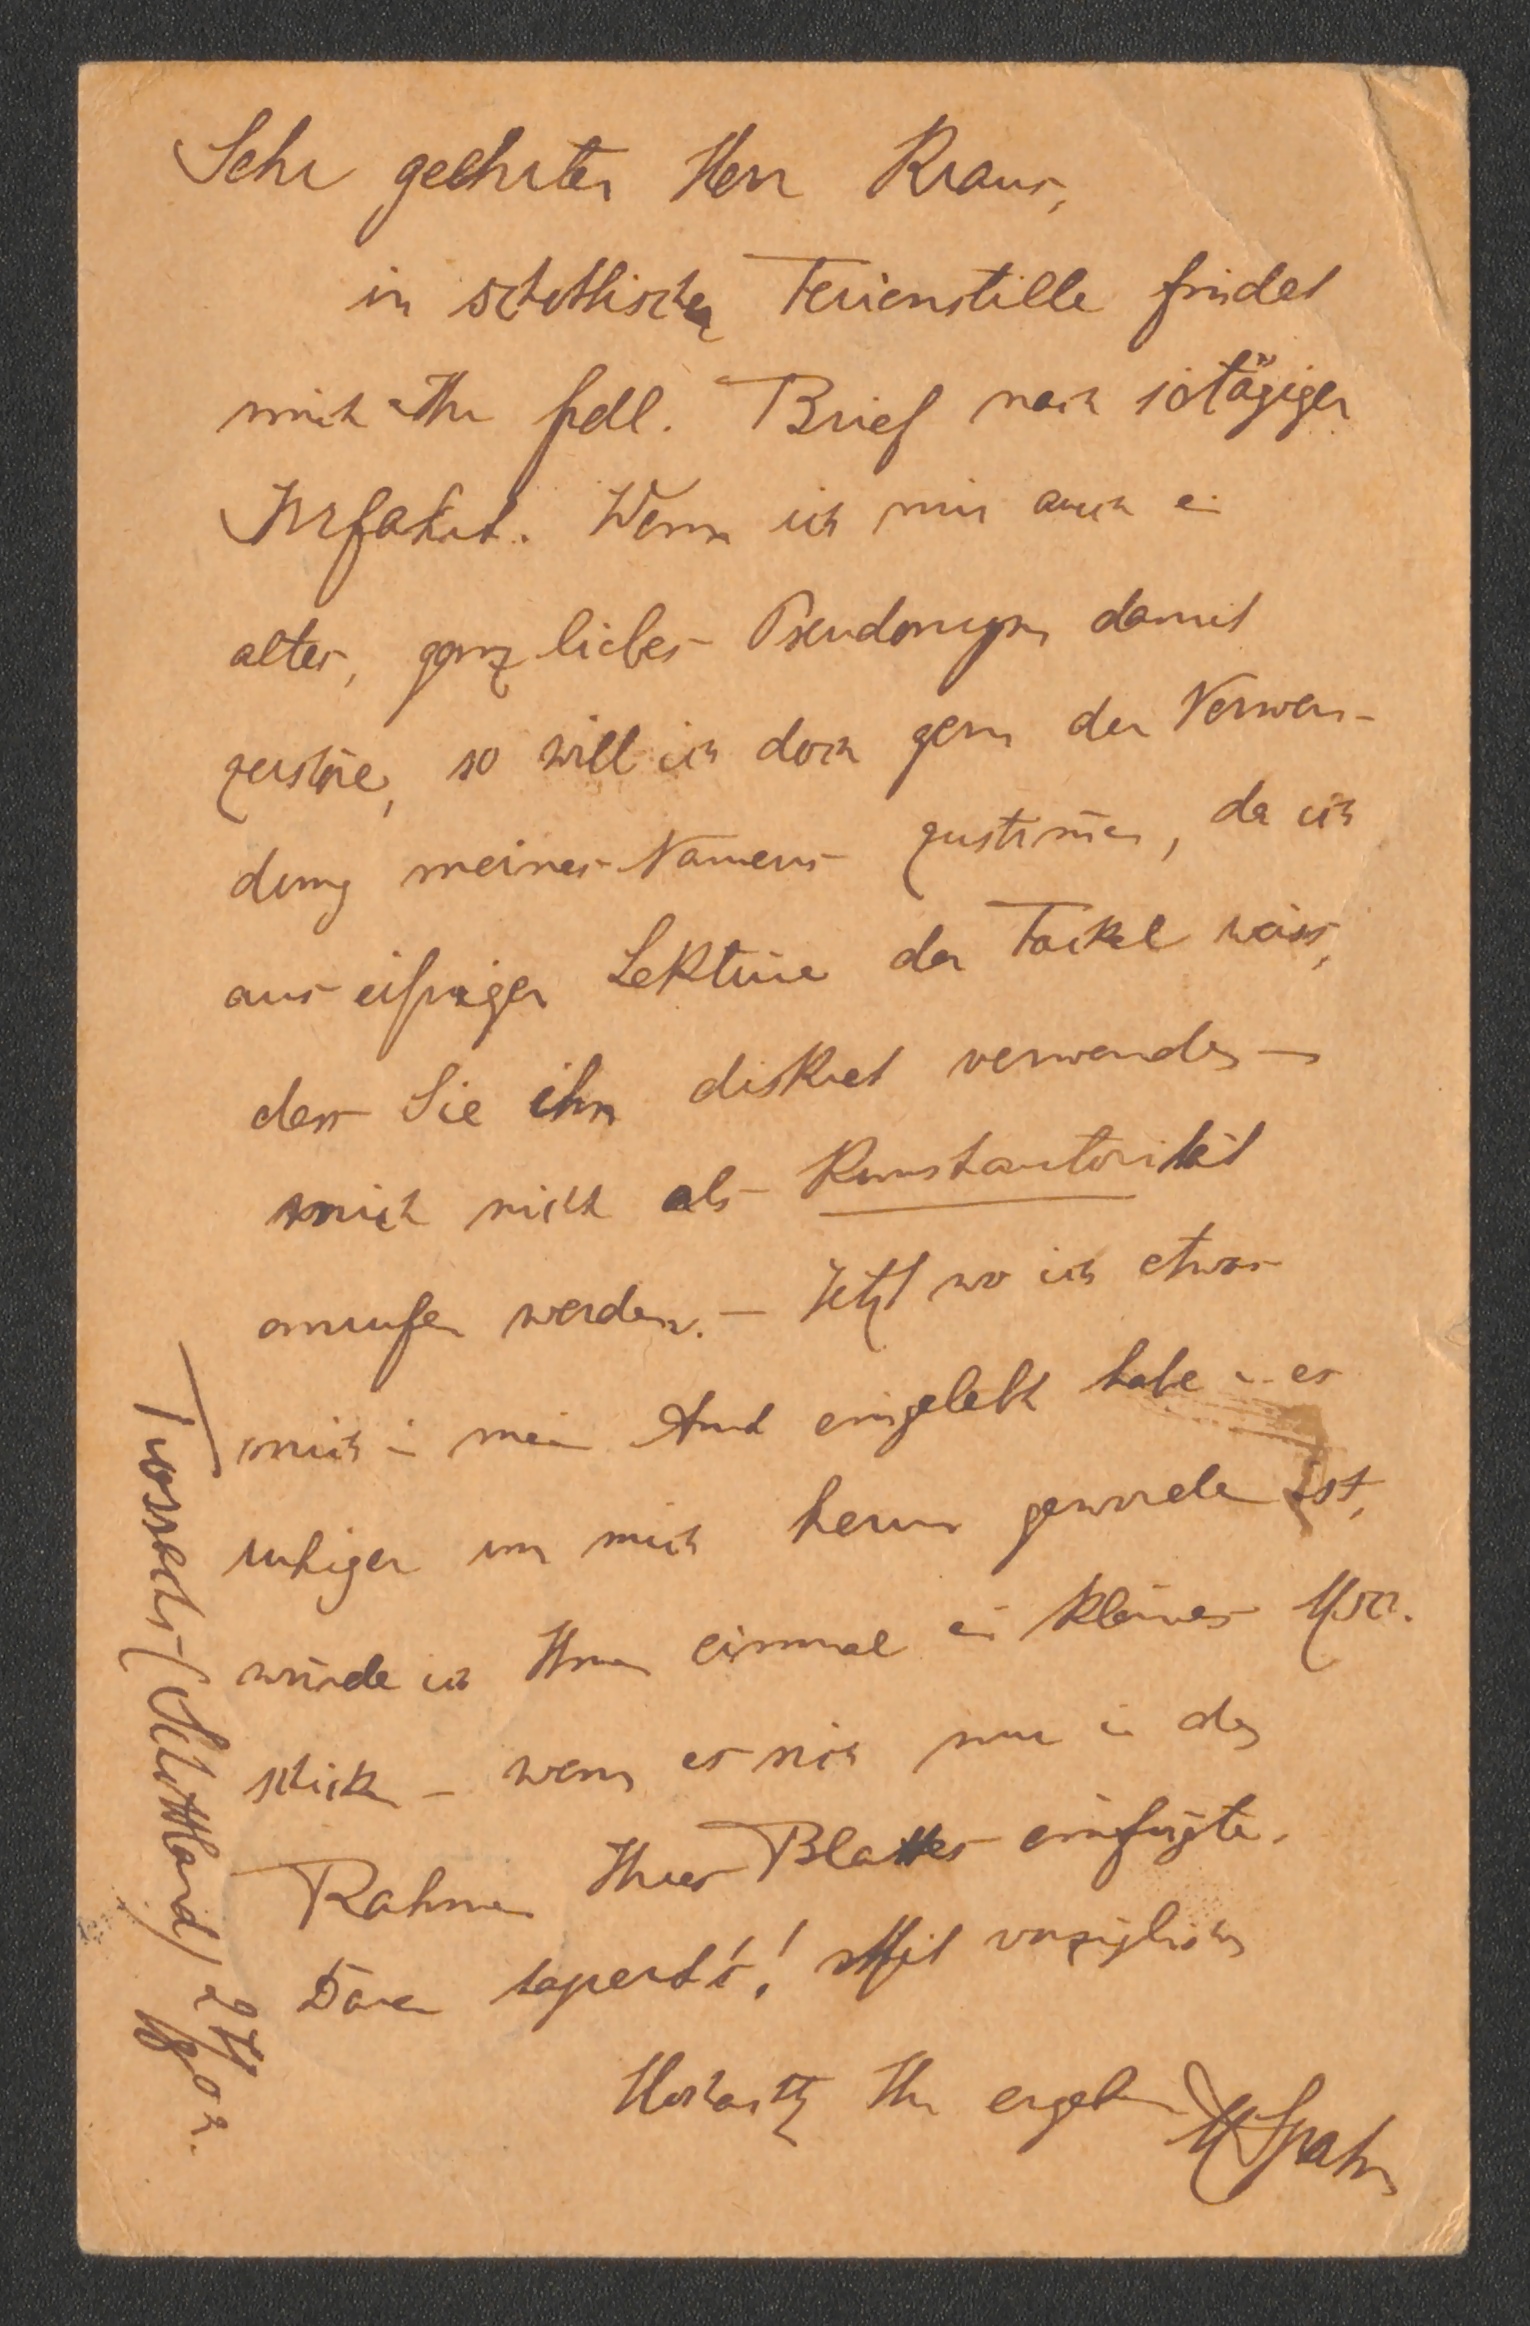 Sehr geehrter Herr Kraus,
in schottischer Ferienstille findet
mich Ihr frdl. Brief nach 10tägiger
Irrfahrt. Wenn ich mir auch ein
altes, ganz liebes Pseudonym damit
zerstöre, so will ich doch gern der Verwen-
dung meines Namens zustimen, da ich
aus eifriger Lektüre der Fackel weiss,
dass Sie ihn diskret verwenden
mich nicht als Kunstautorität
anrufen werden. - Jetzt wo ich etwas
mich in mein Amt eingelebt habe u. es
ruhiger um mich herum geworden ist,
würde ich Ihnen einmal ein kleines Msc.
schicken - wenn es sich nur in den
Rahmen Ihres Blattes einfügte.
Daran hapert's! Mit vorzüglicher
Hochacht Ihr ergeben M Spahn
(Schottland) 27